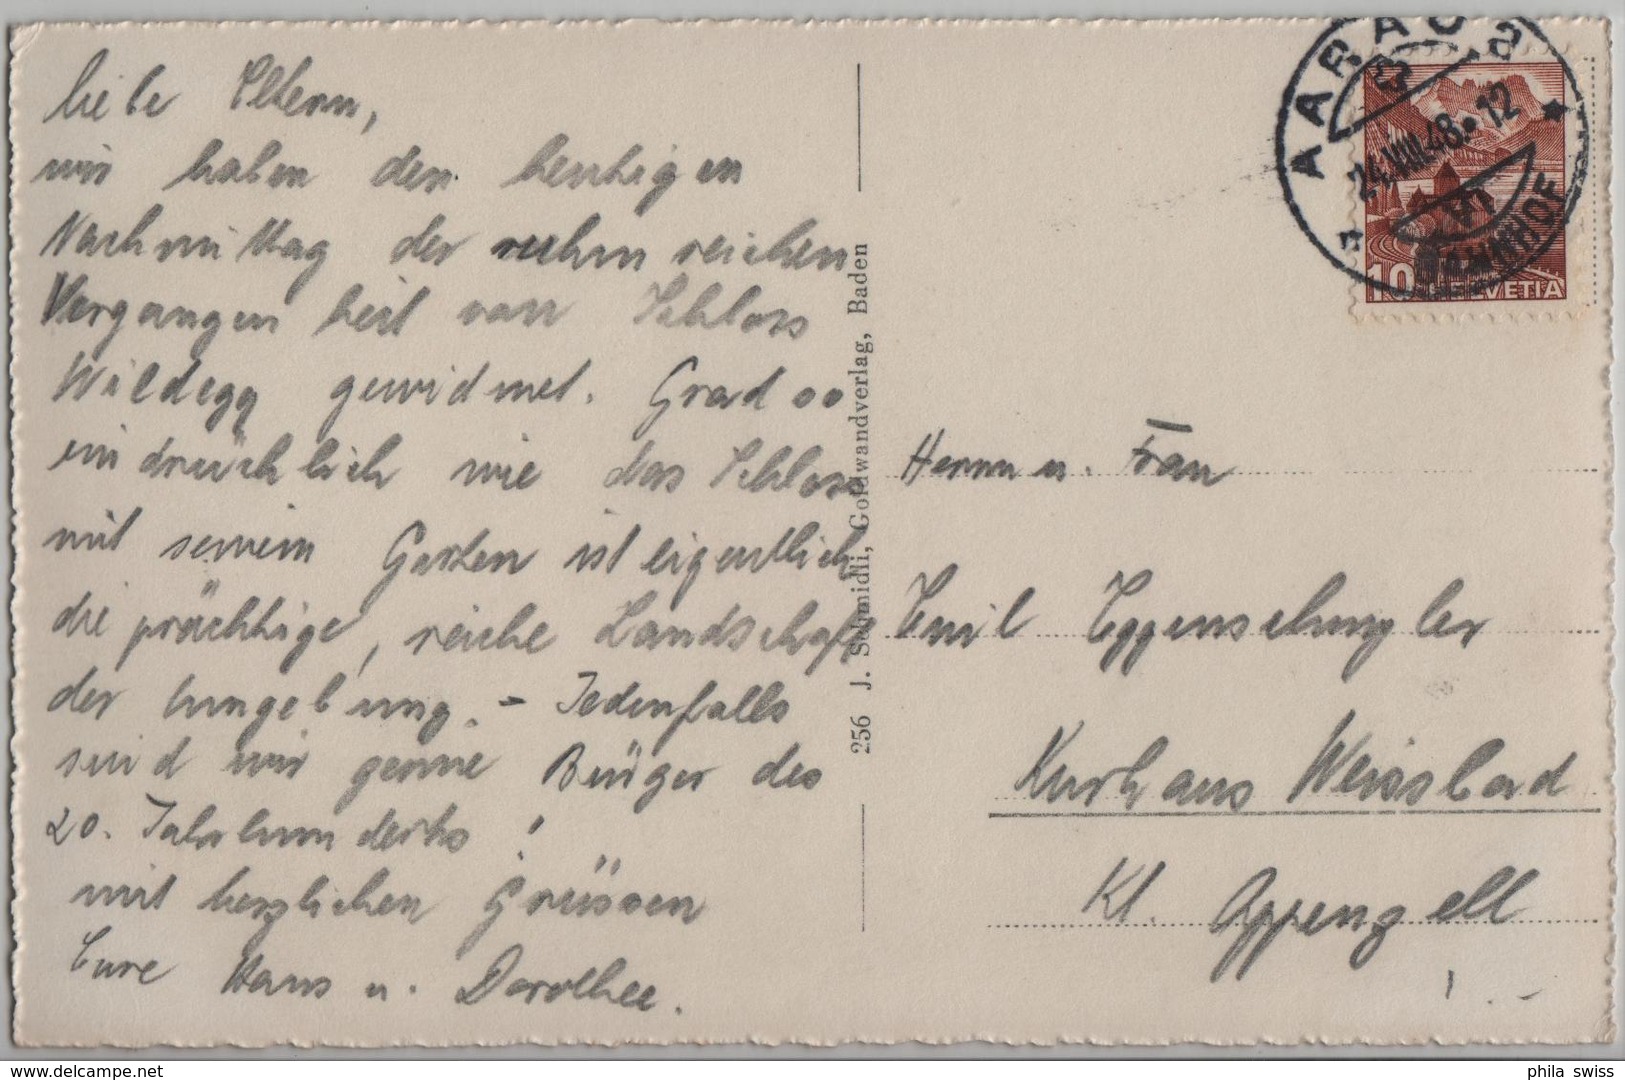 liebe Eltern,
wir haben den heutigen
Nachmittag der ruhmreichen
Vergangenheit von Schloss
Wildegg gewidmet. Gradso
eindrücklich wie das Schloss
mit seinem Garten ist eigentlich
die prächtige, reiche Landschaft
der Umgebung. - Jedenfalls
sind wir gerne Bürger des
20. Jahrhunderts!
mit herzlichen Grüssen
Eure Hans u. Dorothee.
256 J. Schmidli, Goldwandverlag, Baden
AARAU 2
24.VIII.48. 12
BAHNHOF
10 HELVETIA
Herrn u. Frau
Emil Eggenschwyler
Kurhaus Weissbad
Kt. Appenzell
phila swiss